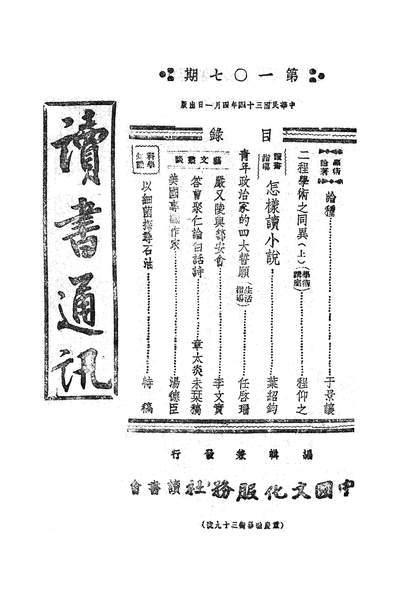 第一〇七期
中華民國三十四年四月一日出版
讀書通訊
目錄
學術論著
論種……于景讓
二程學術之同異（上）（學術講座）……程仰之
讀書指導
怎樣讀小說……葉紹鈞
青年政治家的四大誓願（生活指導）……任啓珊
藝文叢談
嚴又陵與籌安會……李文
答曹聚仁論白話詩……章太炎未栞稿
美國專欄作家……湯德臣
科學知識
以細菌探尋石油……特稿
編輯兼發行
中國文化服務社讀書會
（重慶磁器街三十九號）